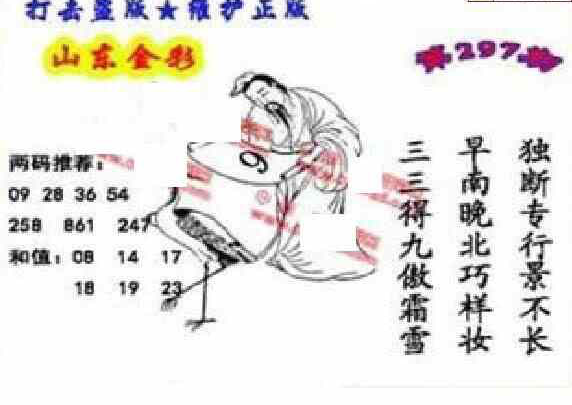 打击盗版★维护正版
山东金彩
297
两码推荐：
09 28 36 54
258 861 247
和值：08 14 17
18 19 23
9
独断专行景不长
早南晚北巧样妆
三三得九傲霜雪